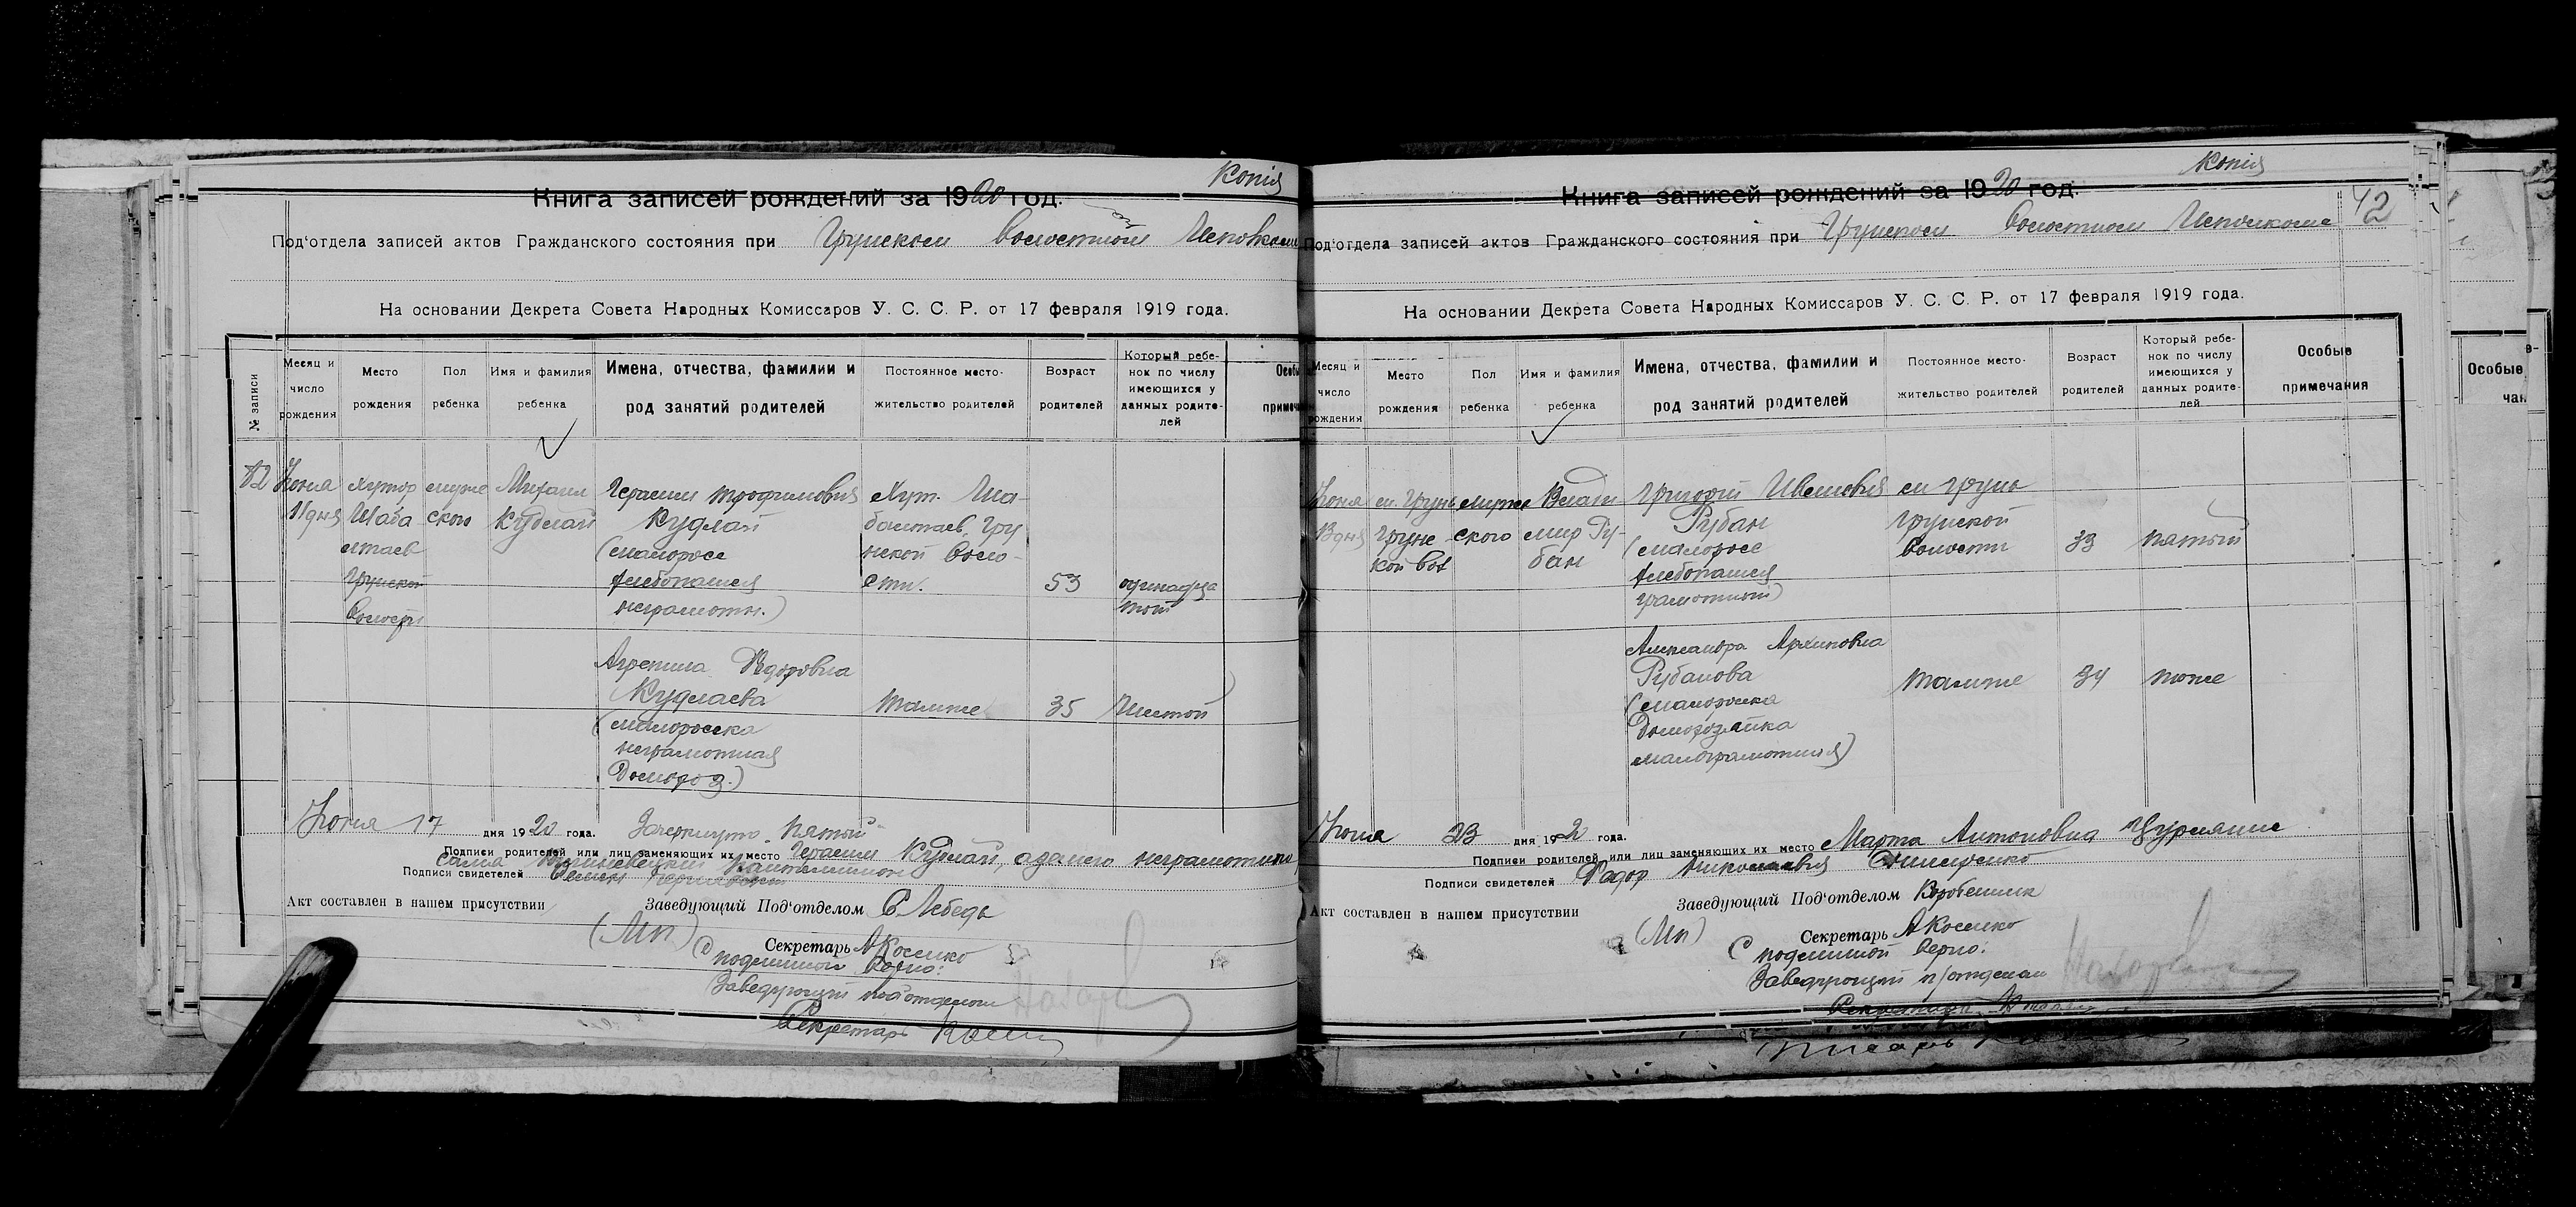 Копія
Книга записей рождений за 1920 год.
Под'отдела записей актов Гражданского состояния при Грунском Волостном Исполкоме
На основании Декрета Совета Народных Комиссаров У. С. С. Р. от 17 февраля 1919 года.
№ записи
Месяц и число рождения
Место рождения
Пол ребенка
Имя и фамилия ребенка
Имена, отчества, фамилии и род занятий родителей
Постоянное место-жительство родителей
Возраст родителей
Который ребе-нок по числу имеющихся у данных родите-лей
Июня
11 дня
хутор
Шаба
лтаев
Грунской
Волости
муже
ского
Михаил
Кудлай
Герасим Трофимович
Кудлай
(малоросс
хлебопашец
неграмотн.)
Хут. Ша-
балтаев, Гру
нской Воло-
сти.
53
одинадца
тый
Агрепина Федоровна
Кудлаева
(малоросска
неграмотная
Домохоз.)
тамже
35
Шестой
Июня 17 дня 1920 года. Зачеркнуто пятый
Подписи родителей или лиц заменяющих их место Герасим Кудлай, а за него неграмотного
Подписи свидетелей
Акт составлен в нашем присутствии
Заведующий Под'отделом С. Лебедь
(Мп)
Секретарь А Косенко
С подлинной Верно:
Заведующий подотделом
Секретарь
Копія
42
Книга записей рождений за 1920 год.
Под'отдела записей актов Гражданского состояния при Грунском Волостном Исполкоме
На основании Декрета Совета Народных Комиссаров У. С. С. Р. от 17 февраля 1919 года.
Месяц и число рождения
Место рождения
Пол ребенка
Имя и фамилия ребенка
Имена, отчества, фамилии и род занятий родителей
Постоянное место-жительство родителей
Возраст родителей
Который ребе-нок по числу имеющихся у данных родите-лей
Особые примечания
Июня
м. Грунь
Грунс
кой вол
муже
ского
Влади
мир Ру-
бан
Григорий Иванович
Рубан
(малоросс
хлебопашец
грамотный)
м Грунь
Грунской
Волости
33
пятый
Александра Архиповна
Рубанова
(малоросска
Домохозяйка
малограмотная)
тамже
34
тоже
Июня 23 дня 1920 года.
Подписи родителей или лиц заменяющих их место Марта Антоновна
Подписи свидетелей Федор Николаевич
Акт составлен в нашем присутствии
Заведующий Под'отделом
(Мп)
Секретарь А Косенко
С подлинной Верно:
Заведующий п/отделом
Особые